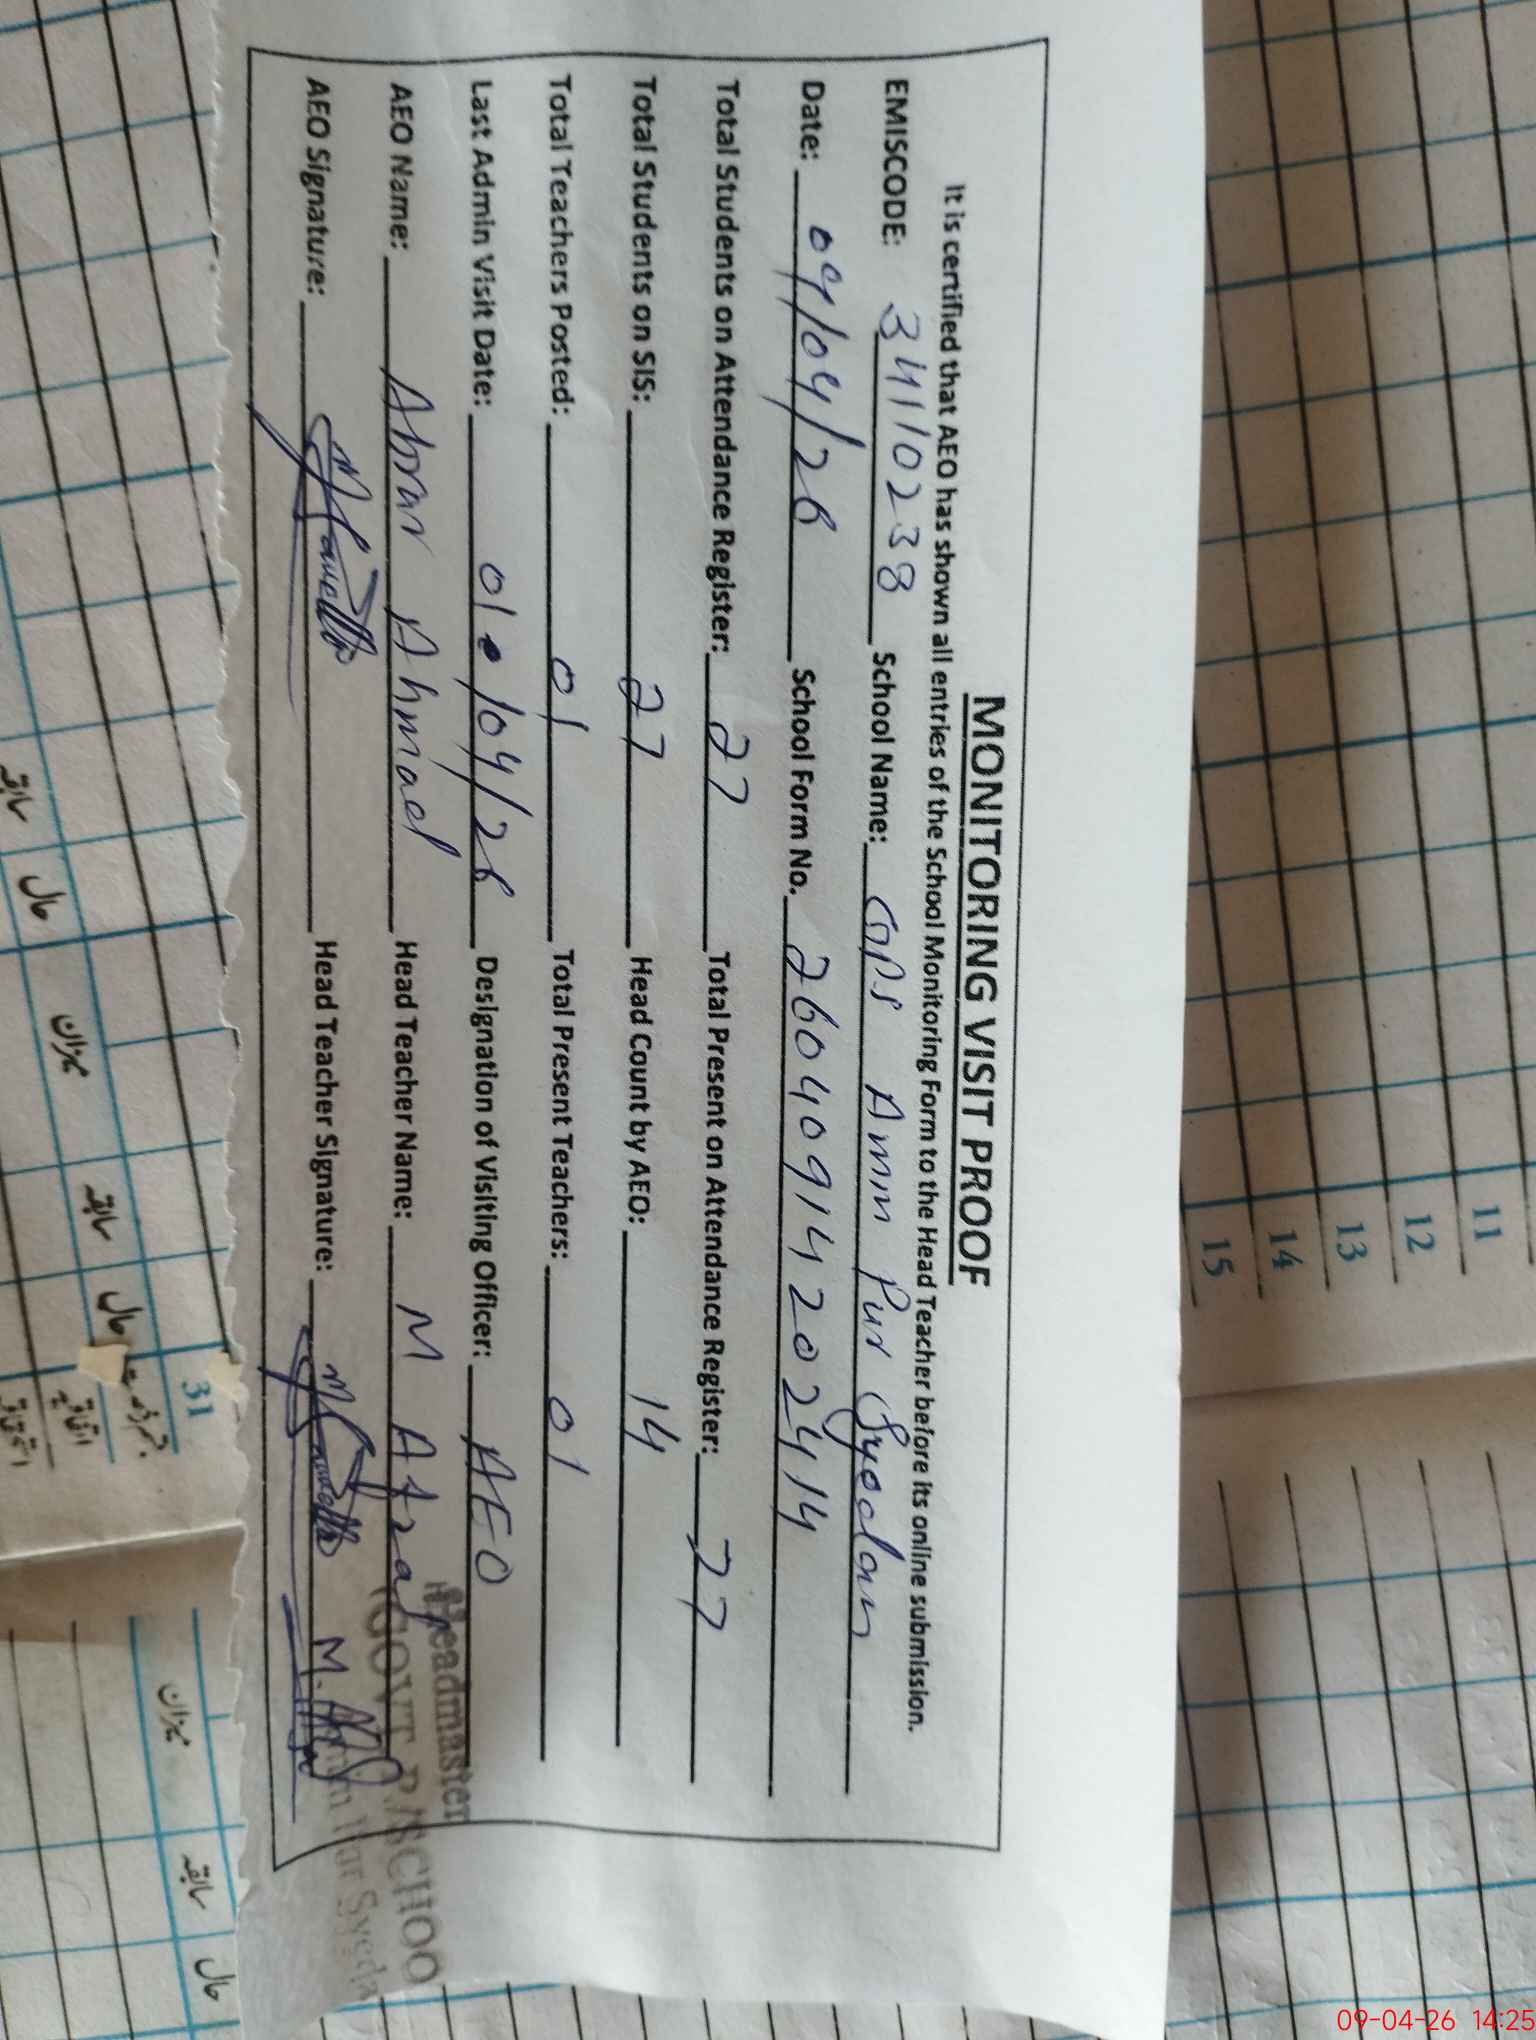 MONITORING VISIT PROOF
It is certified that AEO has shown all entries of the School Monitoring Form to the Head Teacher before its online submission.
EMISCODE: 34110238 School Name: GPS Amin Pur Syedan
Date: 09/04/26 School Form No. 26040914202414
Total Students on Attendance Register: 27 Total Present on Attendance Register: 27
Total Students on SIS: 27 Head Count by AEO: 14
Total Teachers Posted: 01 Total Present Teachers: 01
Last Admin Visit Date: 01/04/26 Designation of Visiting Officer: AEO
AEO Name: Abrar Ahmad Head Teacher Name: M Afzal
AEO Signature: Head Teacher Signature:
Headmaster
GOVT P/SCHOO
Pur Syeda
11
12
13
14
15
31
سابقہ
حال
میزان
سابقہ
حال
میزان
سابقہ
حال
09-04-26 14:25